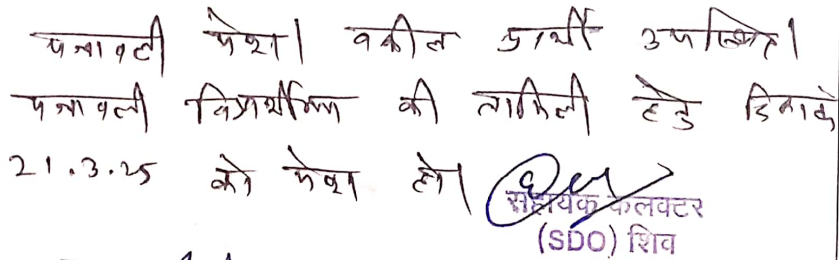 पत्रावली पेश। वकील प्रार्थी उपस्थित।
पत्रावली विप्रार्थीगण की तामिली हेतु दिनांक
21.3.25 को पेश हो।
सहायक कलक्टर
(SDO) शिव